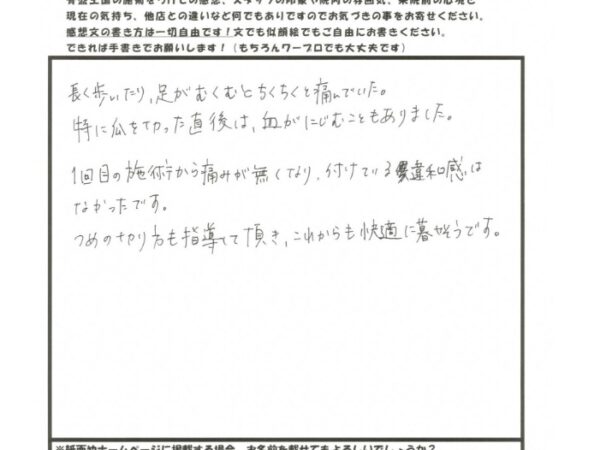 現在の気持ち、他店との違いなど何でもありですのでお気づきの事をお寄せください。
感想文の書き方は一切自由です！文でも似顔絵でもご自由にお書きください。
できれば手書きでお願いします！（もちろんワープロでも大丈夫です）
長く歩いたり、足がむくむとちくちくと痛んでいた。
特に爪を切った直後は、血がにじむこともありました。
1回目の施術から痛みが無くなり、付けている違和感は
なかったです。
つめの切り方も指導して頂き、これからも快適に暮せそうです。
※紙面やホームページに掲載する場合、お名前を載せてもよろしいでしょうか？